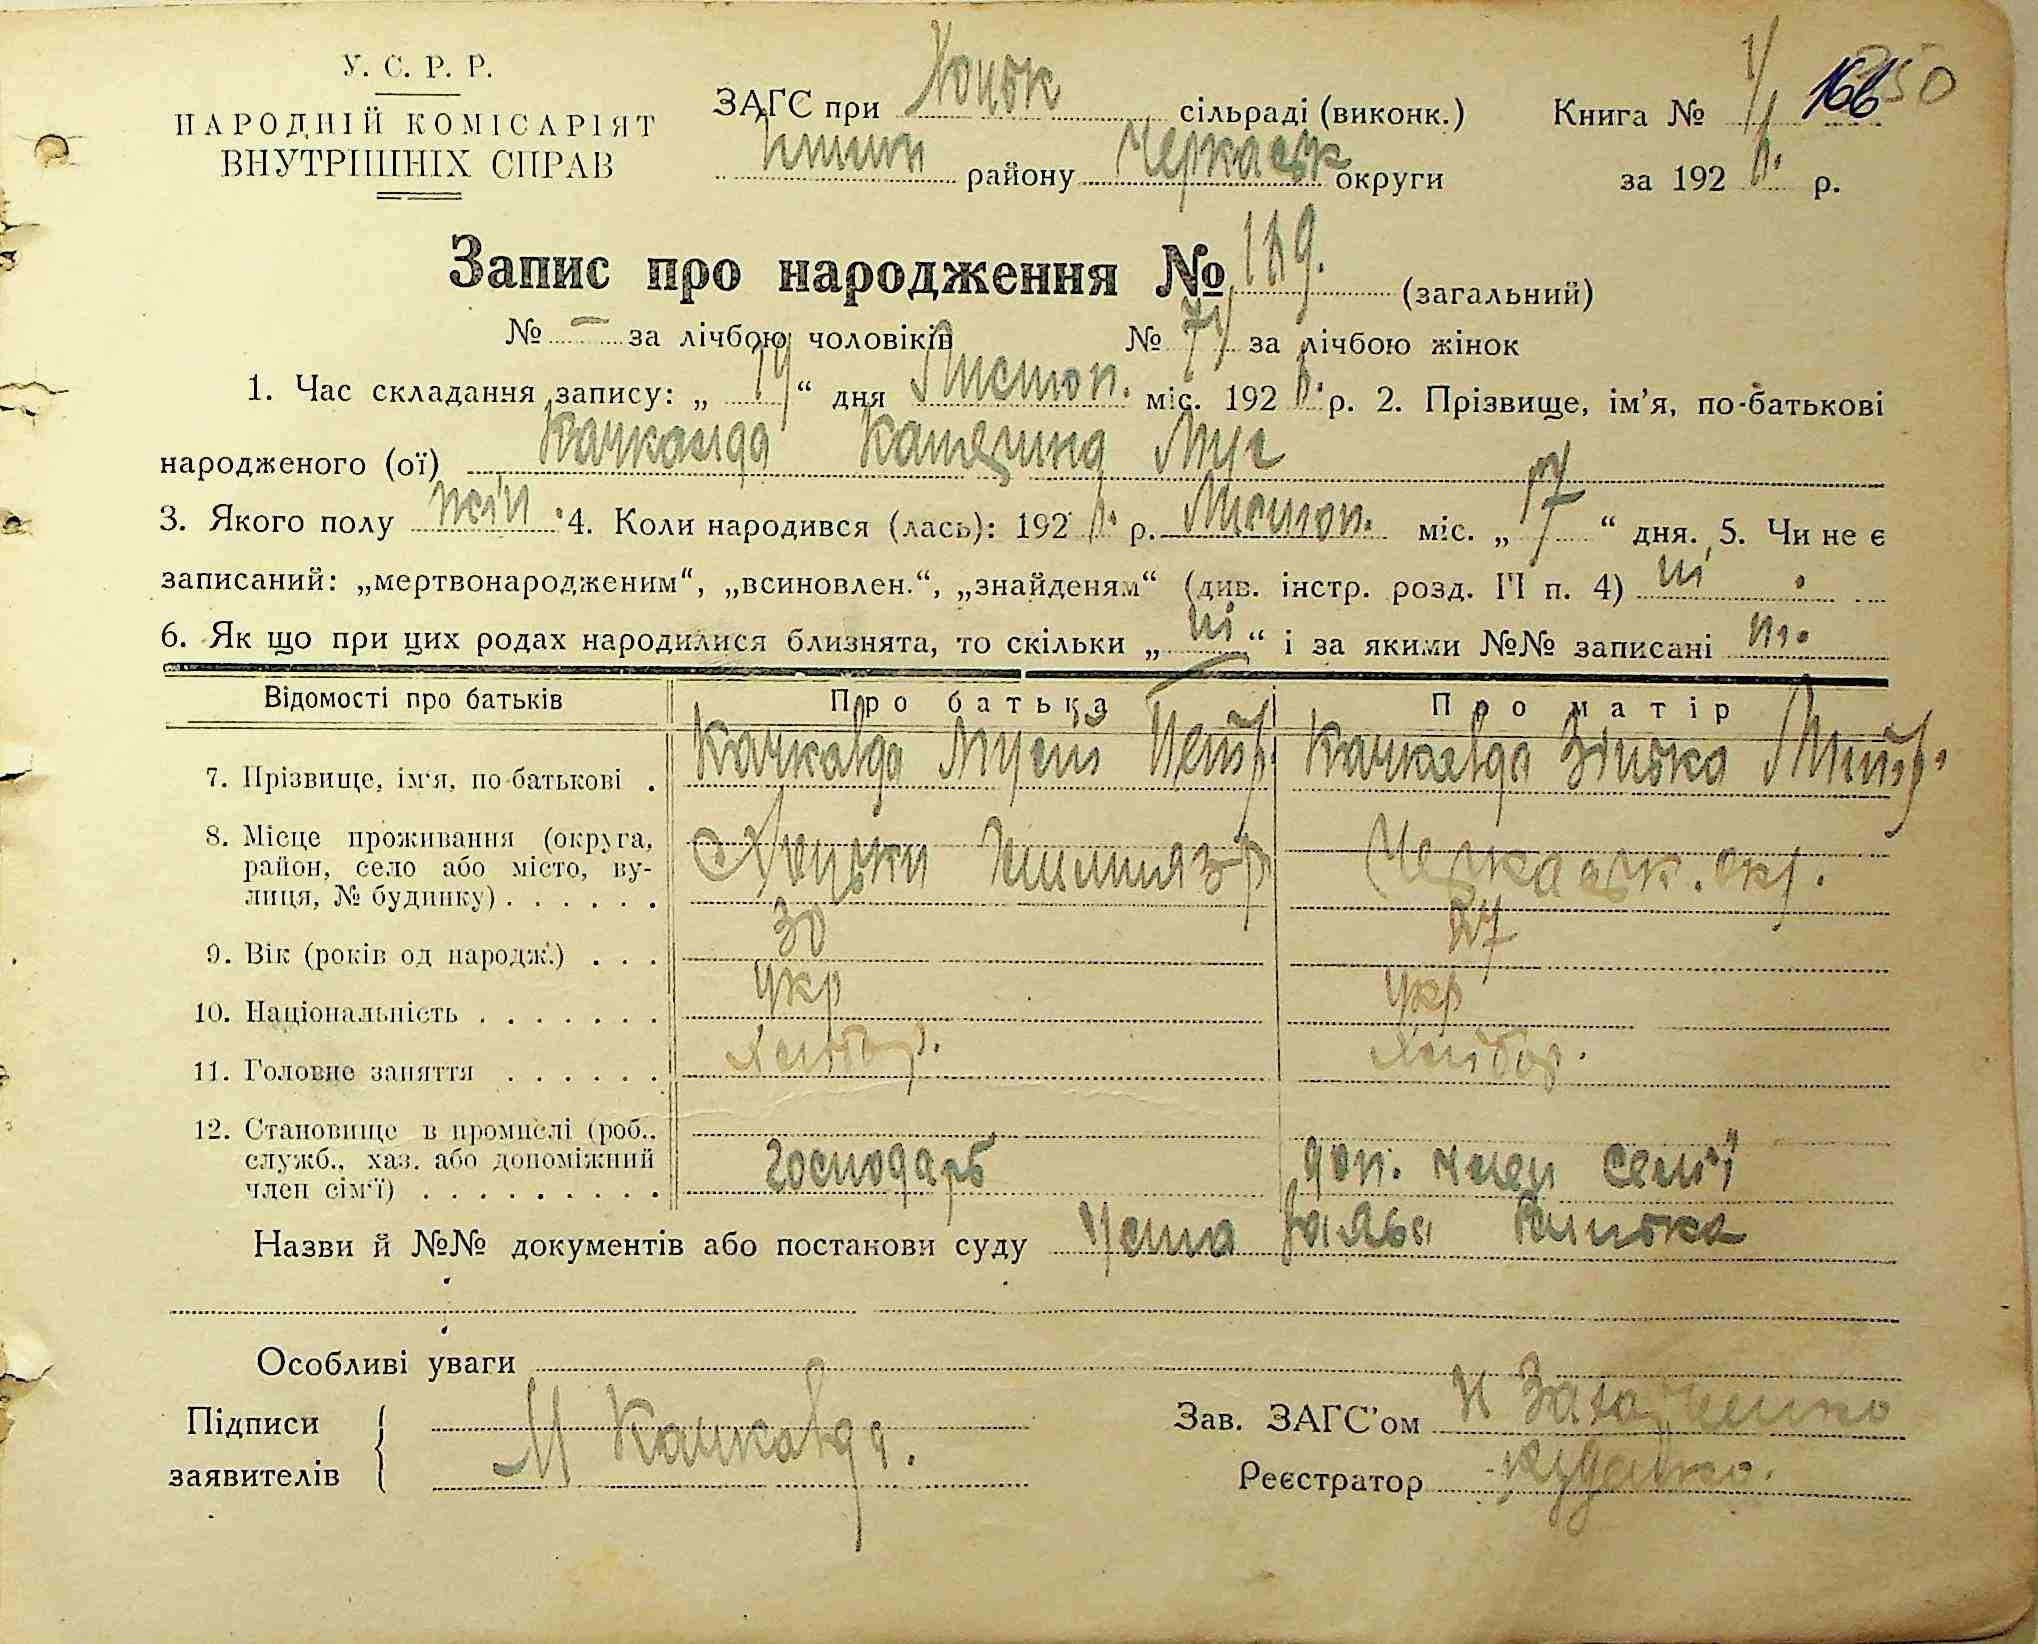 У. С. Р. Р.
НАРОДНІЙ КОМІСАРІЯТ
ВНУТРІШНІХ СПРАВ
ЗАГС при Хоцьк сільраді (виконк.)
району Черкаськ округи
Книга № 1/1 166 250
за 192 р.
Запис про народження № 189. (загальний)
№ — за лічбою чоловіків № 74 за лічбою жінок
1. Час складання запису: „ 19 “ дня Листоп. міс. 192 р. 2. Прізвище, ім’я, по-батькові
народженого (ої) Качкалда Катерина Мус
3. Якого полу жін. 4. Коли народився (лась): 192 р. Листоп. міс. „ 17 “ дня. 5. Чи не є
записаний: „мертвонародженим“, „всиновлен.“, „знайденям“ (див. інстр. розд. ІІІ п. 4) ні
6. Як що при цих родах народилися близнята, то скільки „ ні “ і за якими №№ записані ні.
Відомості про батьків Про батька Про матір
7. Прізвище, ім‘я, по-батькові . Качкалда Мусій Петр. Качкалда Зінька Дмитр.
8. Місце проживання (округа,
район, село або місто, ву-
лиця, № будинку) . . . . . . с Хоцьки Черкаськ. окр.
9. Вік (років од народж.) . . . 30 27
10. Національність . . . . . . . укр укр
11. Головне заняття . . . . . . хлібор. хлібор.
12. Становище в промислі (роб.,
служб., хаз. або допоміжний
член сім‘ї) . . . . . . . . . господарь доп. член семї
Назви й №№ документів або постанови суду Устна заява батька
Особливі уваги
Підписи
заявителів М Качкалда.
Зав. ЗАГС’ом
Реєстратор